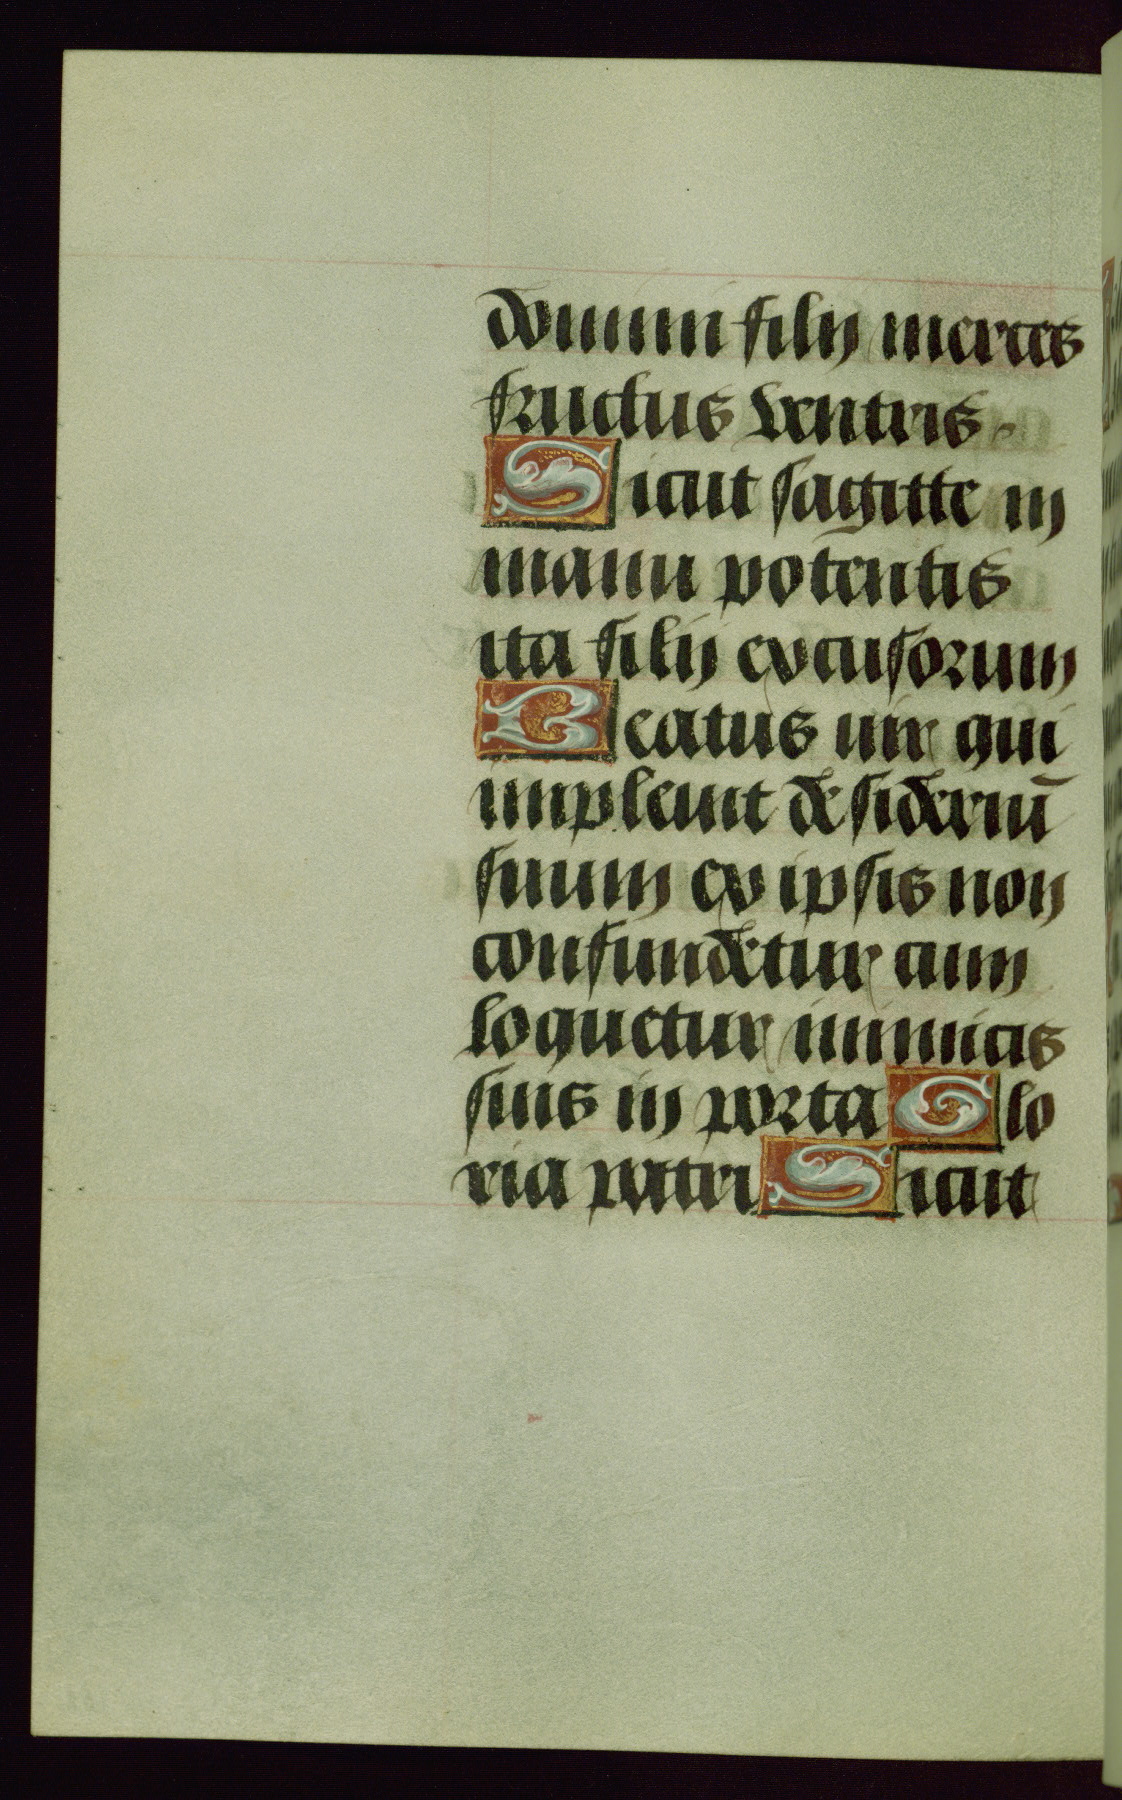 domini filij merces
fructus ventris.
Sicut sagitte in
manu potentis
ita filij excusorum
Beatus uir qui
impleuit desideriū
suum ex ipsis non
confundetur cum
loquetur inimicis
suis in porta Glo
ria patri Sicut